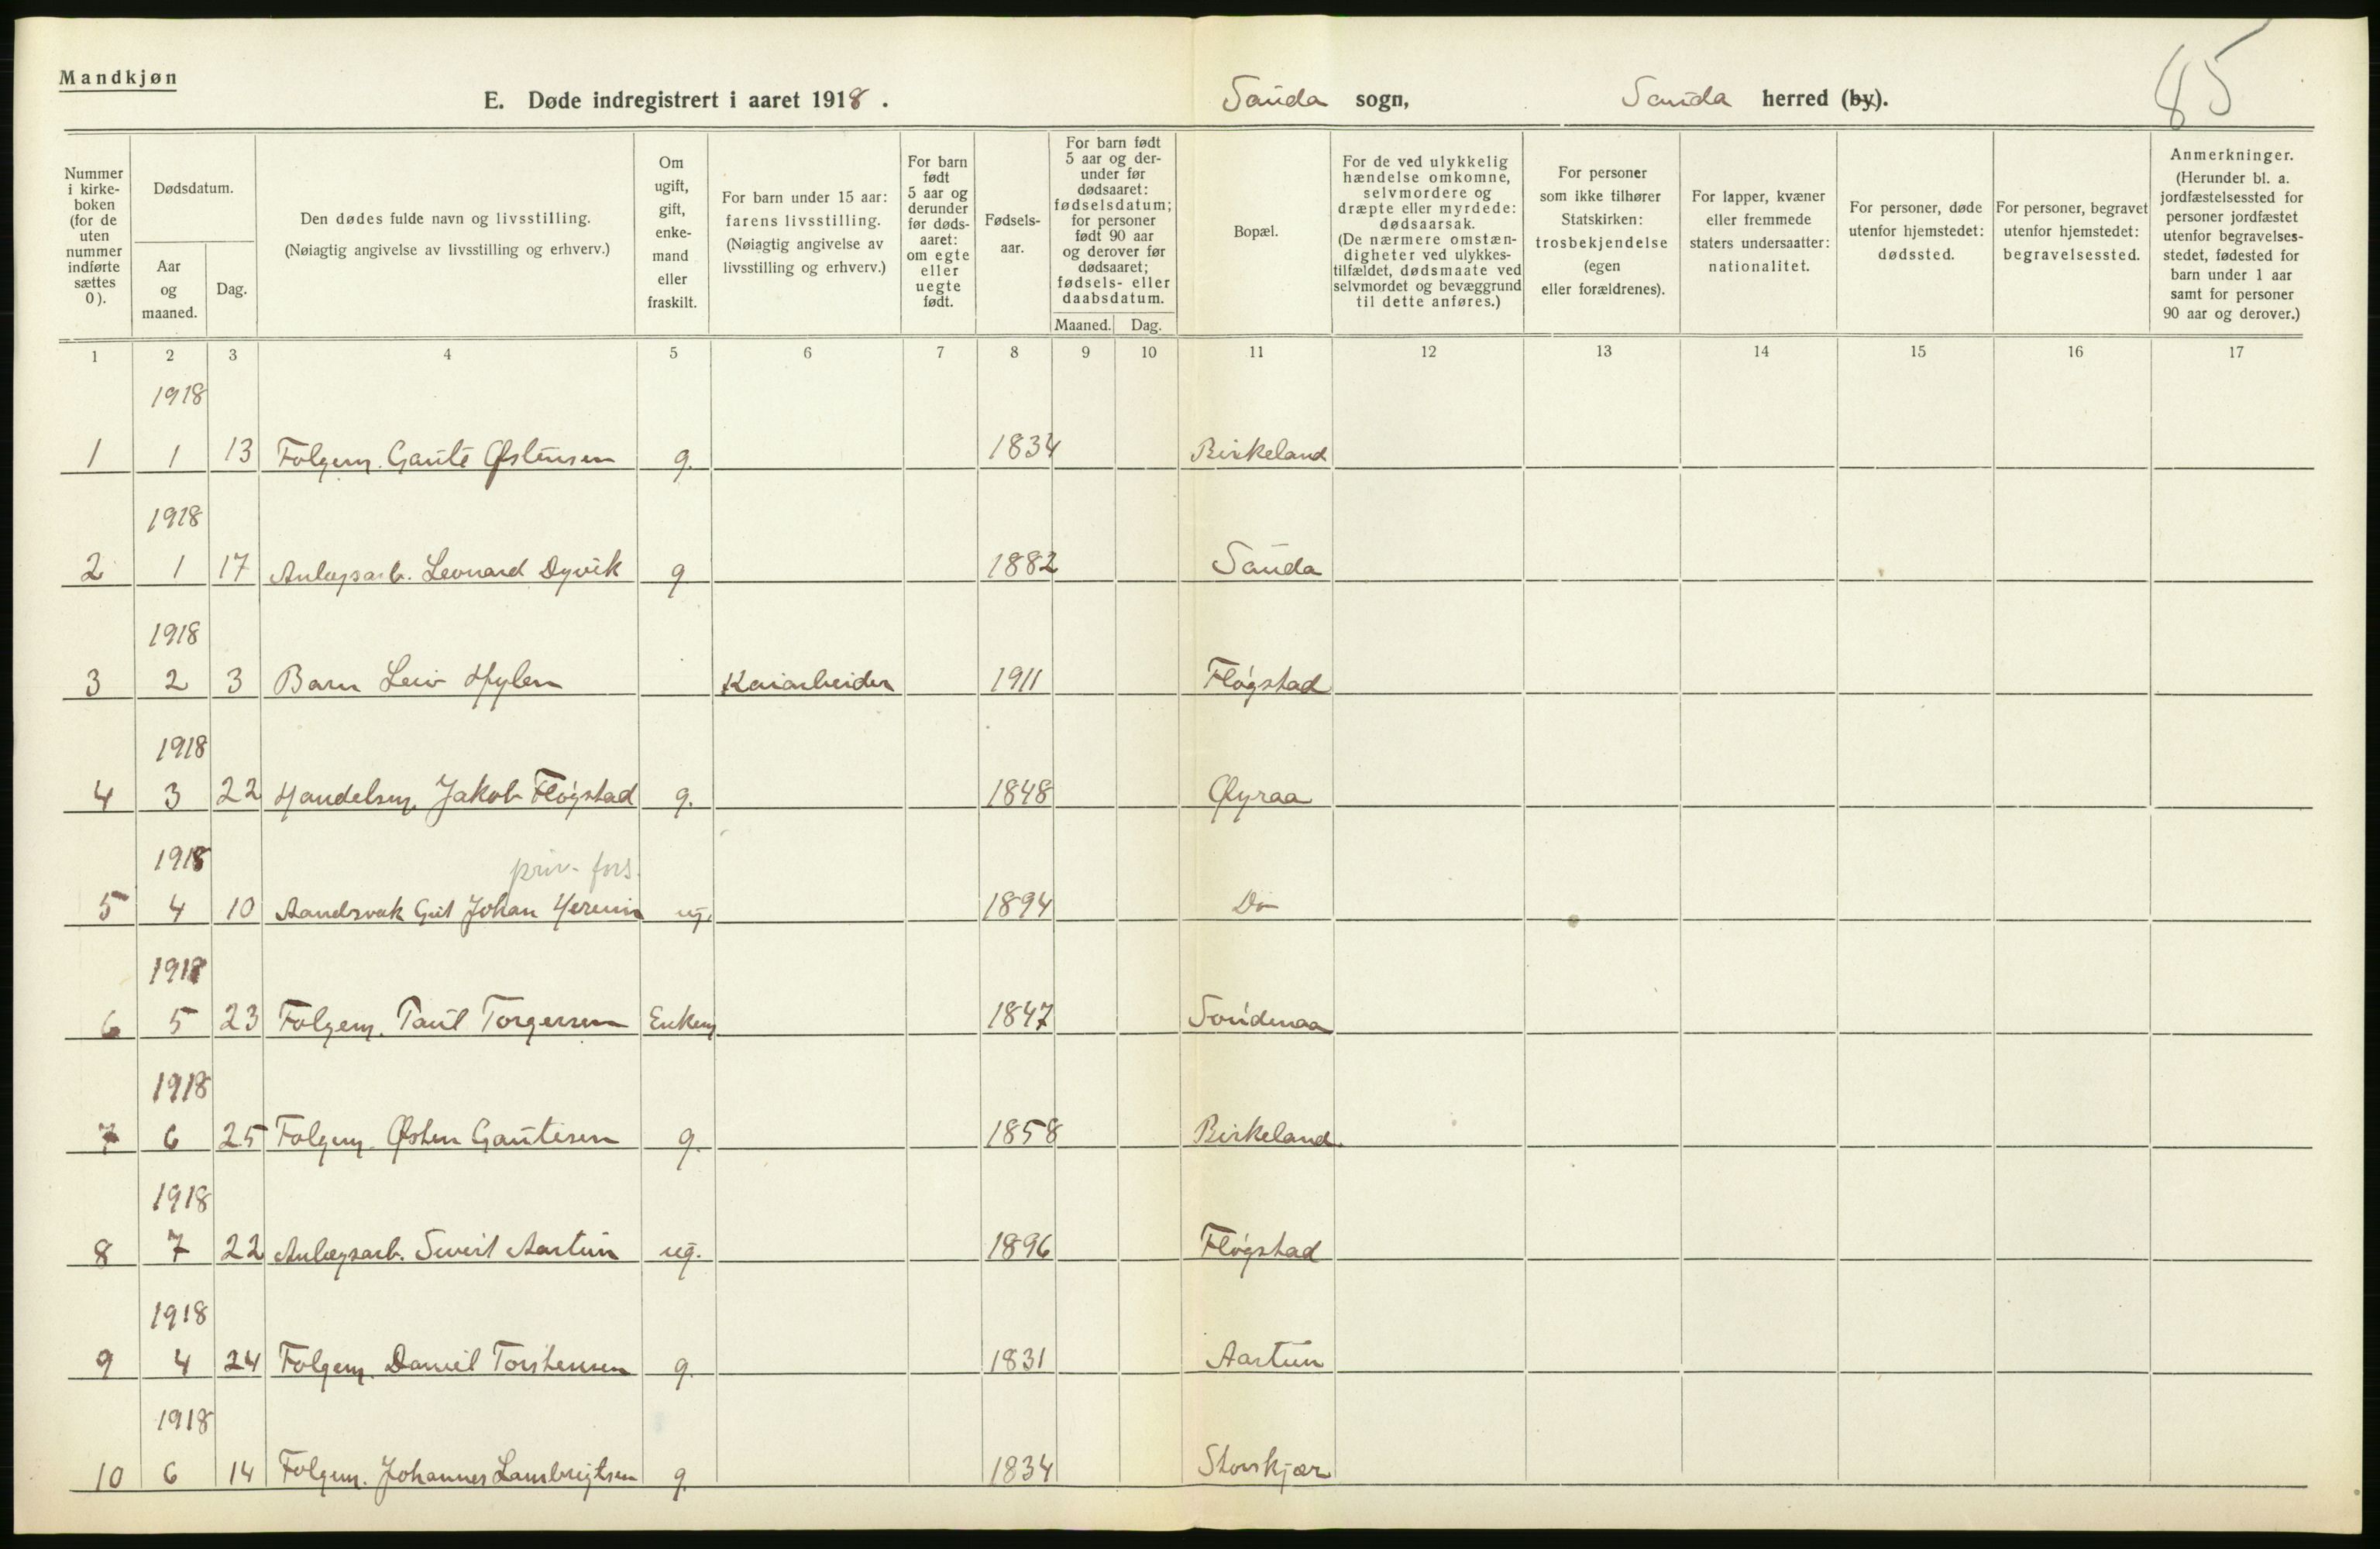 Mandkjøn
E. Døde indregistrert i aaret 1918. Sauda sogn, Sauda herred (by).
85
Nummer i kirkeboken (for de uten nummer indførte sættes 0).
Dødsdatum.
Aar og maaned.
Dag.
Den dødes fulde navn og livsstilling.
(Nøiagtig angivelse av livsstilling og erhverv.)
Om ugift, gift, enkemand eller fraskilt.
For barn under 15 aar: farens livsstilling. (Nøiagtig angivelse av livsstilling og erhverv.)
For barn født 5 aar og derunder før dødsaaret: om egte eller uegte født.
Fødselsaar.
For barn født 5 aar og derunder før dødsaaret: fødselsdatum; for personer født 90 aar og derover før dødsaaret; fødsels- eller daabsdatum.
Maaned. Dag.
Bopæl.
For de ved ulykkelig hændelse omkomne, selvmordere og dræpte eller myrdede: dødsaarsak. (De nærmere omstændigheter ved ulykkestilfældet, dødsmaate ved selvmordet og bevæggrund til dette anføres.)
For personer som ikke tilhører Statskirken: trosbekjendelse (egen eller forældrenes).
For lapper, kvæner eller fremmede staters undersaatter: nationalitet.
For personer, døde utenfor hjemstedet: dødssted.
For personer, begravet utenfor hjemstedet: begravelsessted.
Anmerkninger. (Herunder bl. a. jordfæstelsessted for personer jordfæstet utenfor begravelsesstedet, fødested for barn under 1 aar samt for personer 90 aar og derover.)
1 2 3 4 5 6 7 8 9 10 11 12 13 14 15 16 17
1918
1 1 13 Folgem. Gaute Østensen g. 1834 Birkeland
1918
2 1 17 Anlægsarb. Leonard Dyvik g 1882 Sauda
1918
3 2 3 Barn Leiv Hylen Kaiarbeider 1911 Fløgstad
1918
4 3 22 Handelsm. Jakob Fløgstad g. 1848 Øyraa
1918 priv. fors.
5 4 10 Aandsvak Gut Johan ug. 1894 Do
1918
6 5 23 Folgem. Paul Torgersen Enkem 1847 Søndenaa
1918
7 6 25 Folgem. Østen Gautesen g. 1858 Birkeland.
1918
8 7 22 Anlægsarb. Sivert Aartun ug. 1896 Fløgstad
1918
9 4 24 Folgem. Daniel Torstensen g. 1831 Aartun
1918
10 6 14 Folgem. Johannes Lambrigtsen g. 1834 Storskjær